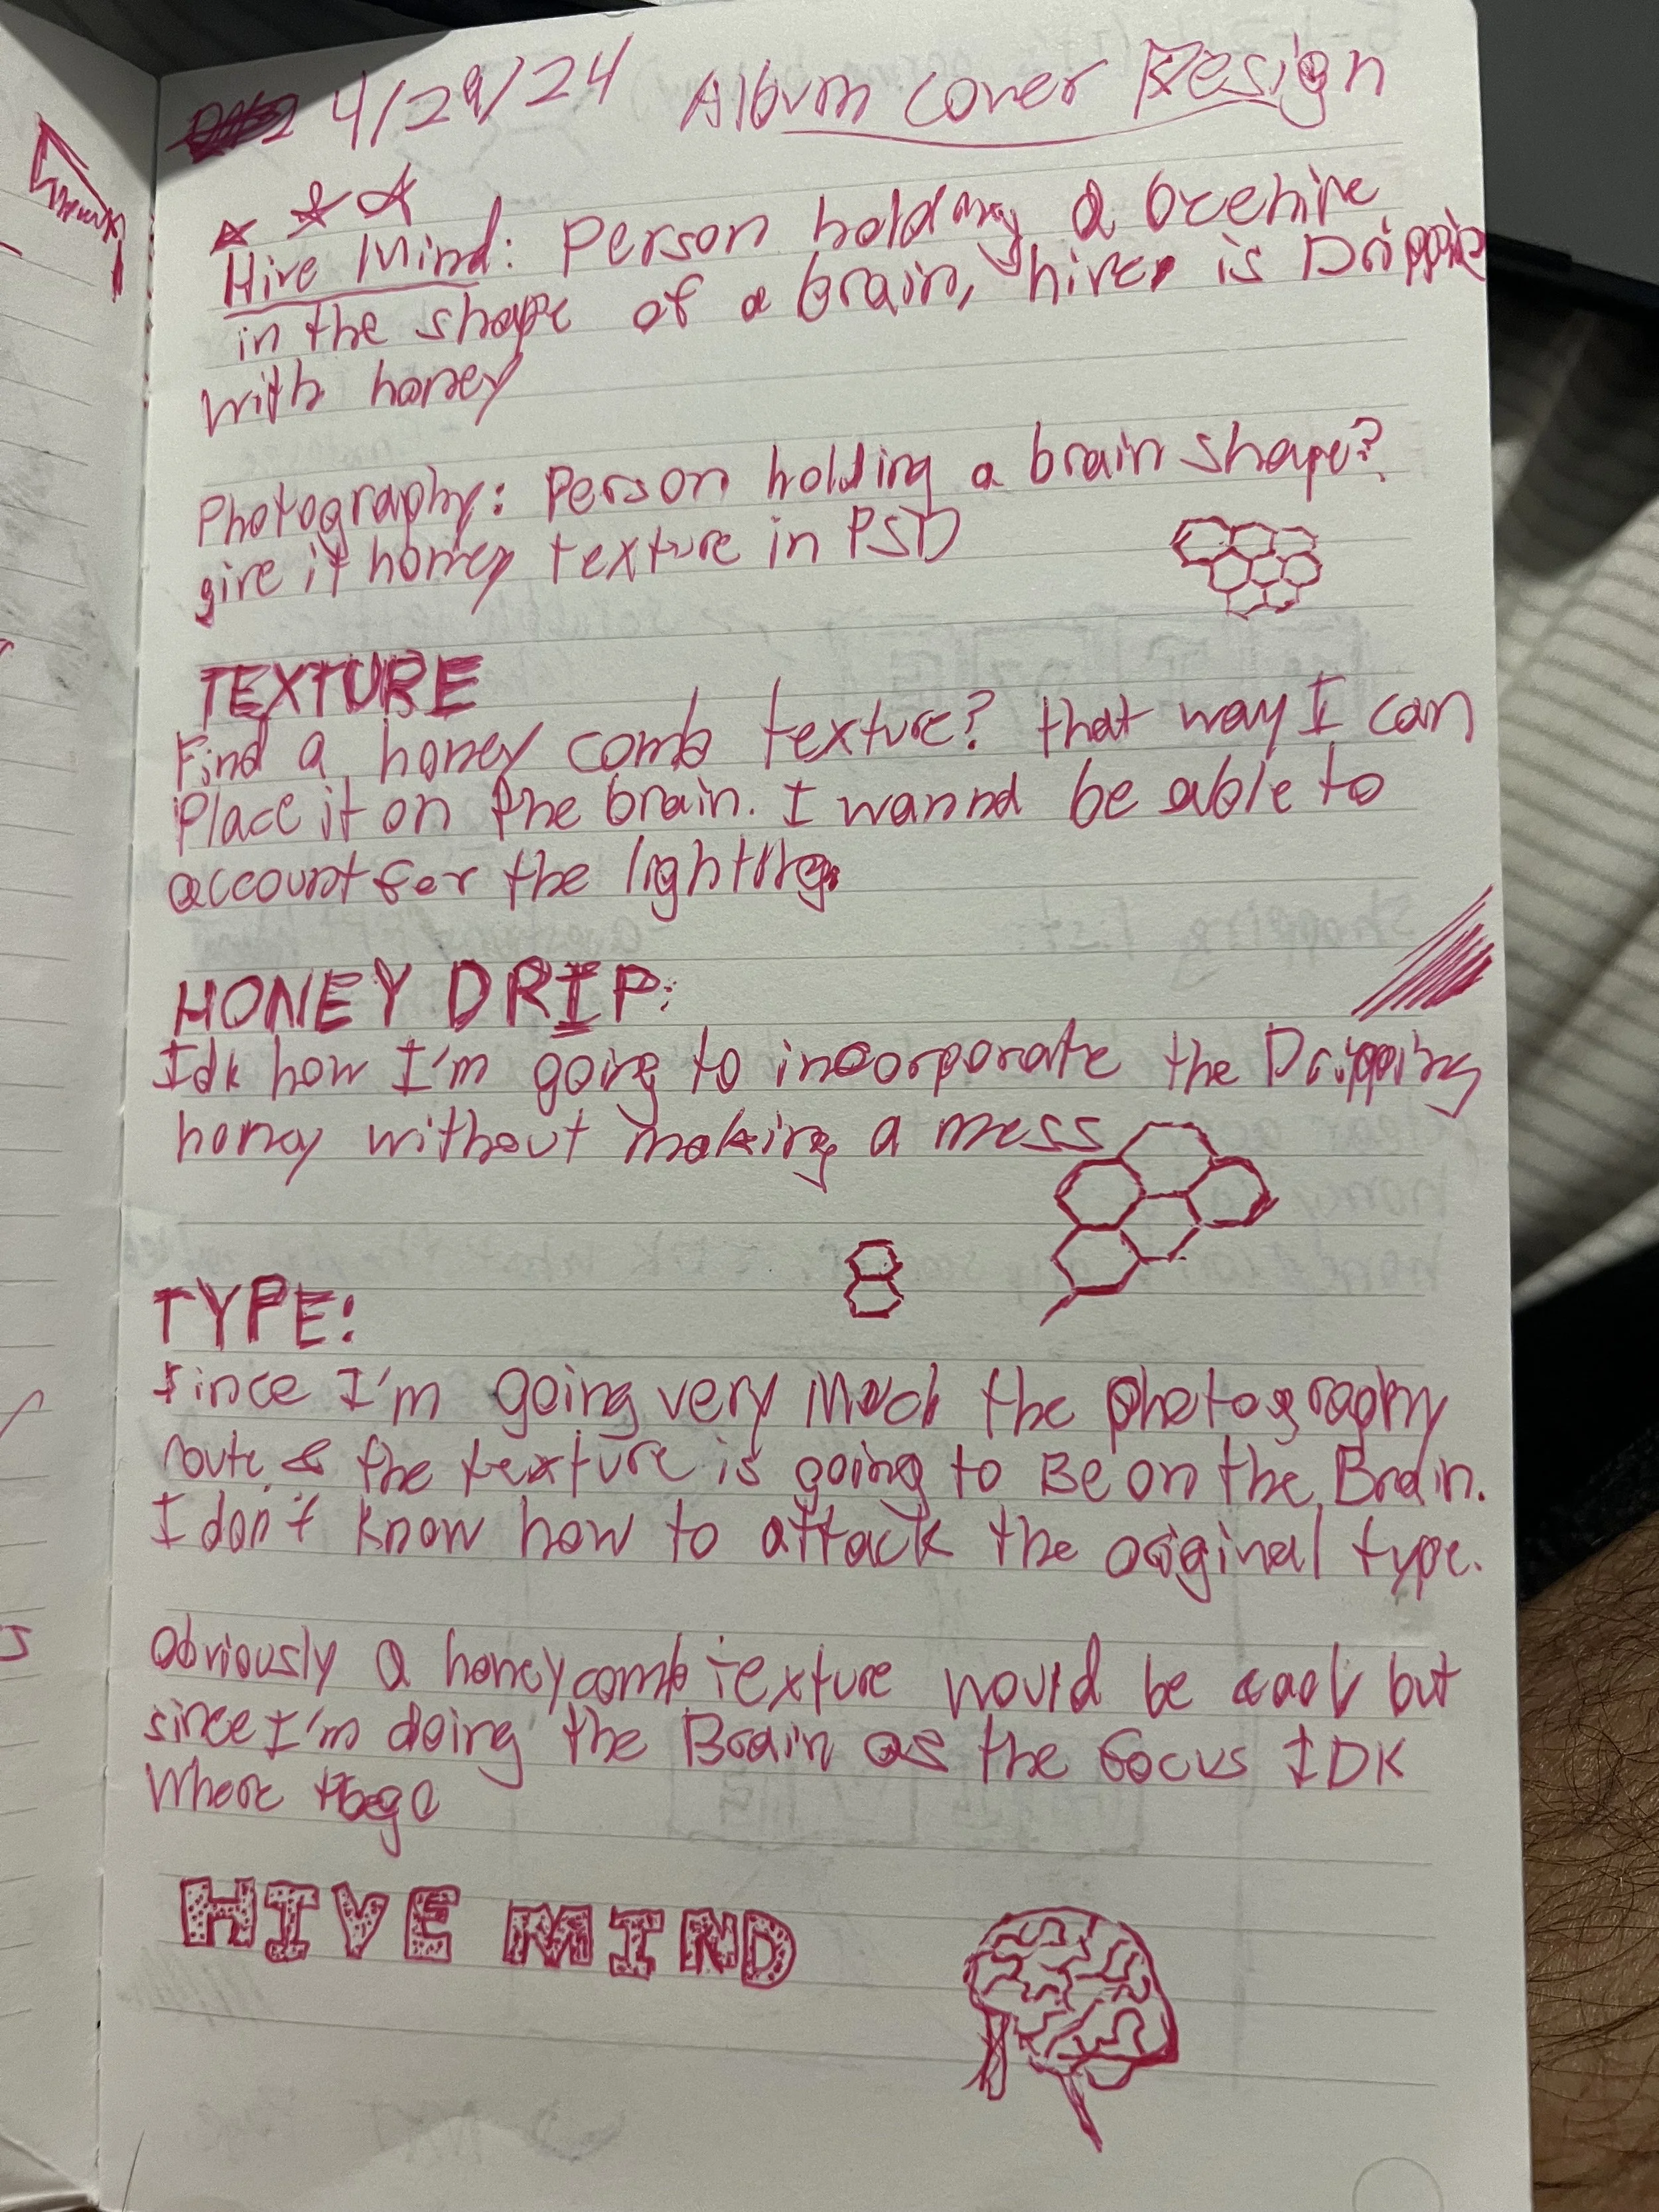 4/29/24 Album Cover Design
Hive Mind: Person holding a beehive
in the shape of a brain, hive is Dripping
with honey
Photography: Person holding a brain shape?
give it honey texture in PSD
TEXTURE
Find a honey comb texture? that way I can
Place it on the brain. I wanna be able to
account for the lighting.
HONEY DRIP:
Idk how I'm going to incorporate the Dripping
honey without making a mess
TYPE:
Since I'm going very Much the photography
route & the texture is going to Be on the Brain.
I don't know how to attack the original type.
Obviously a honeycomb texture would be cool but
since I'm doing the Brain as the focus IDK
Where to go
HIVE MIND